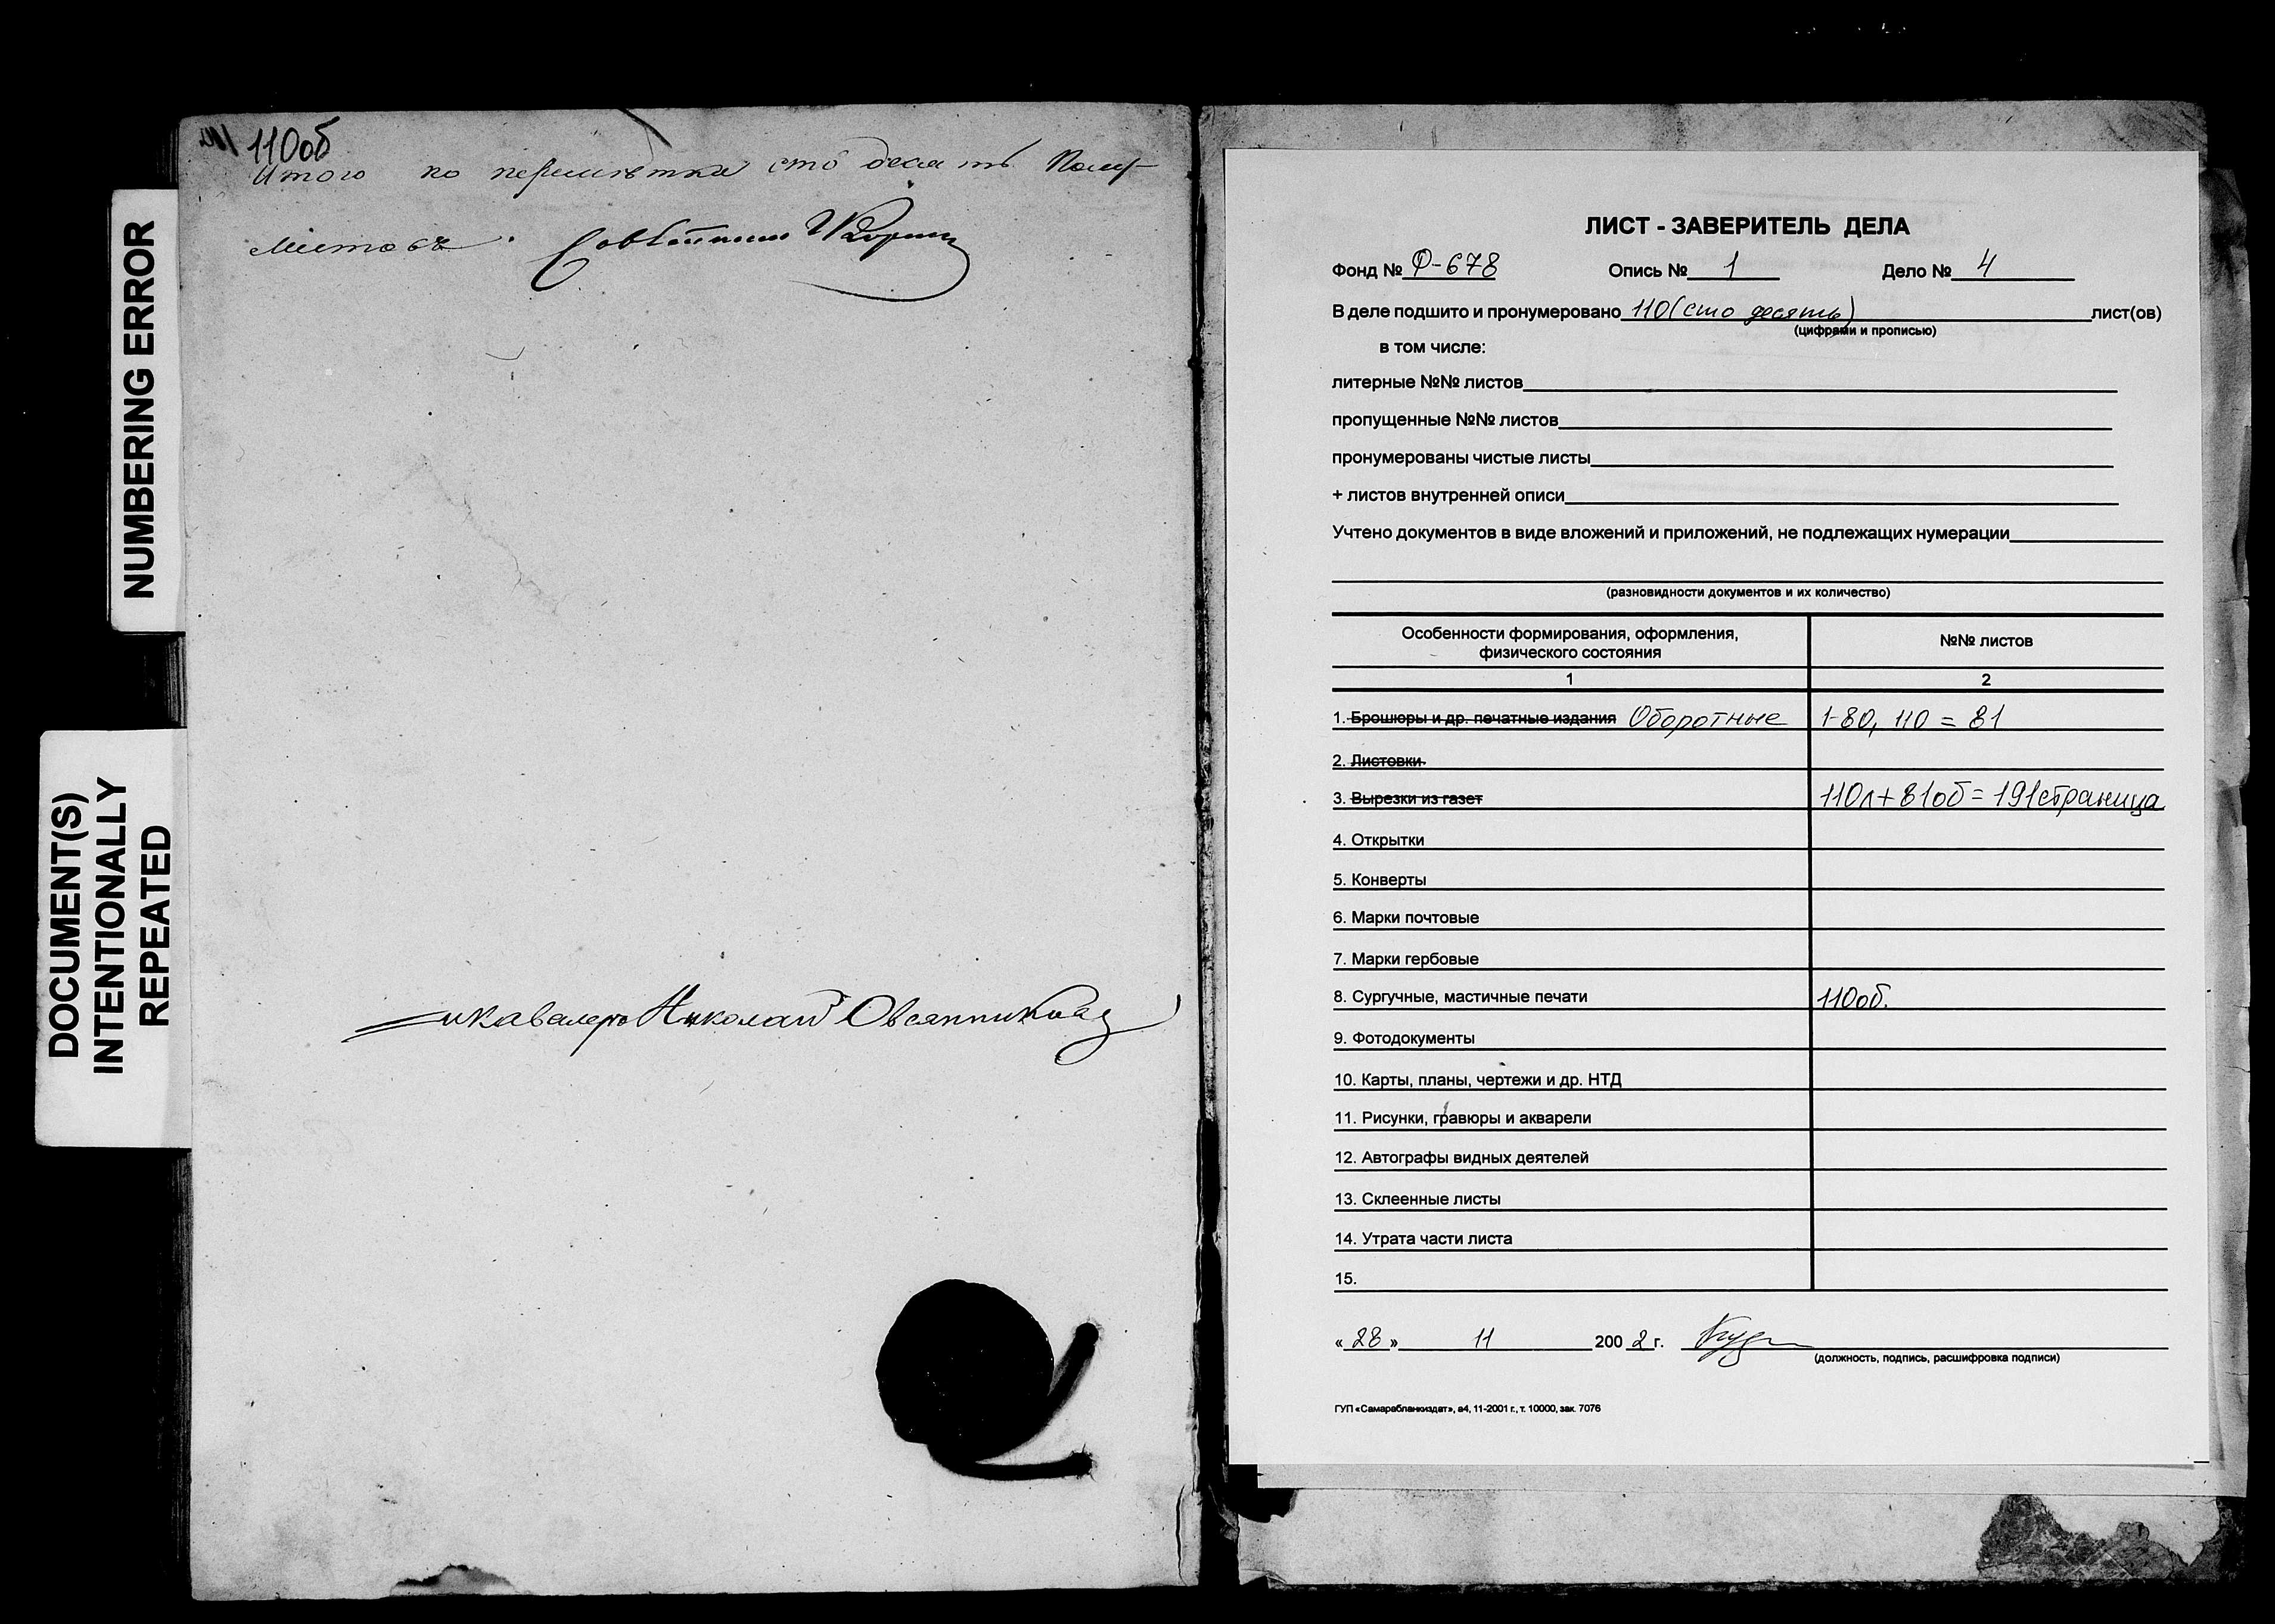 NUMBERING ERROR
DOCUMENT(S)
INTENTIONALLY
REPEATED
110об
Итого по перемѣтка сто десять Полу-
листовъ. Совѣтникъ
икавалеръ Николай Овсянниковъ
ЛИСТ - ЗАВЕРИТЕЛЬ ДЕЛА
Фонд № Ф-678 Опись № 1 Дело № 4
В деле подшито и пронумеровано 110 (сто десять) лист(ов)
(цифрами и прописью)
в том числе:
литерные №№ листов
пропущенные №№ листов
пронумерованы чистые листы
+ листов внутренней описи
Учтено документов в виде вложений и приложений, не подлежащих нумерации
(разновидности документов и их количество)
Особенности формирования, оформления, №№ листов
физического состояния
1 2
1. Брошюры и др. печатные издания Оборотные 1-80, 110 = 81
2. Листовки
3. Вырезки из газет 110л+81об=191страница
4. Открытки
5. Конверты
6. Марки почтовые
7. Марки гербовые
8. Сургучные, мастичные печати 110об.
9. Фотодокументы
10. Карты, планы, чертежи и др. НТД
11. Рисунки, гравюры и акварели
12. Автографы видных деятелей
13. Склеенные листы
14. Утрата части листа
15.
« 28 » 11 200 2 г.
(должность, подпись, расшифровка подписи)
ГУП «Самарабланкиздат», а4, 11-2001 г., т. 10000, зак. 7076